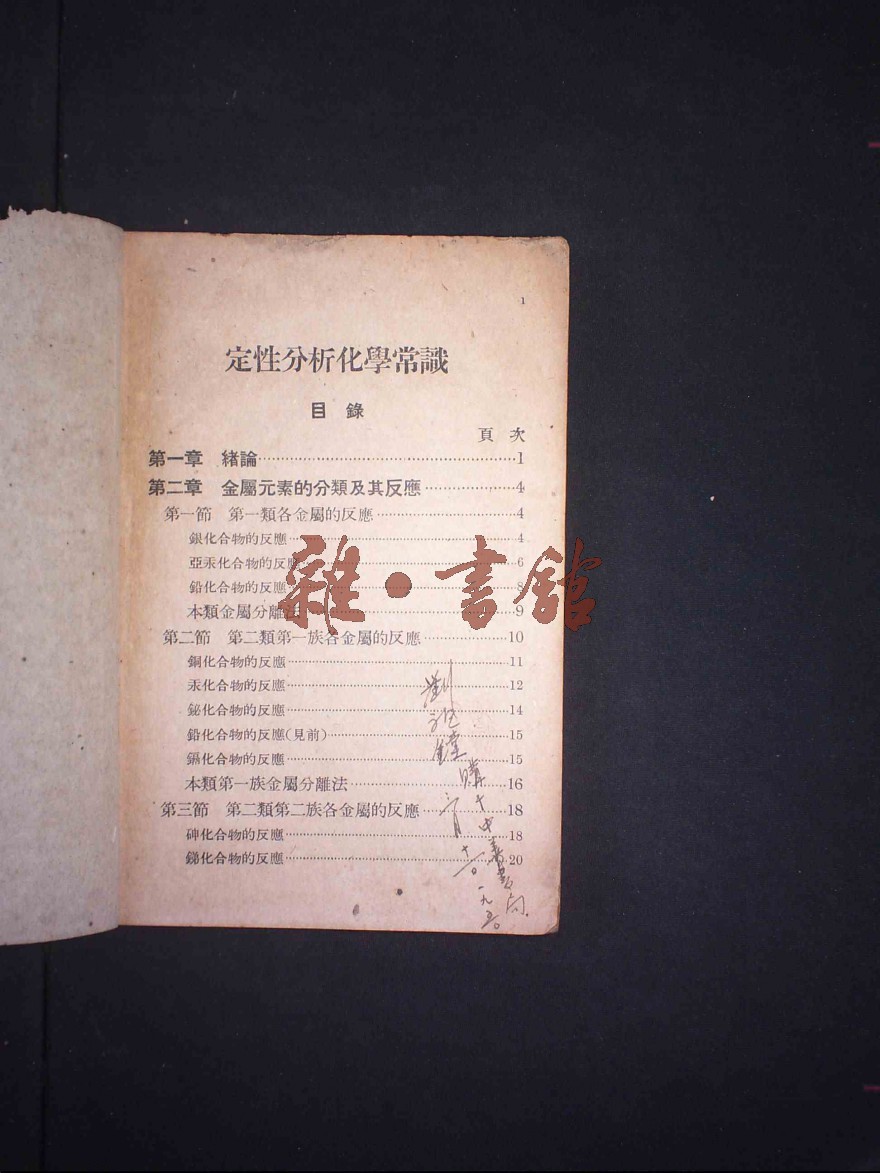 1
定性分析化學常識
目錄
頁次
第一章 緒論……1
第二章 金屬元素的分類及其反應……4
第一節 第一類各金屬的反應……4
銀化合物的反應……4
亞汞化合物的反應……6
鉛化合物的反應……8
本類金屬分離法……9
第二節 第二類第一族各金屬的反應……10
銅化合物的反應……11
汞化合物的反應……12
鉍化合物的反應……14
鉛化合物的反應(見前)……15
鎘化合物的反應……15
本類第一族金屬分離法……16
第三節 第二類第二族各金屬的反應……18
砷化合物的反應……18
銻化合物的反應……20
雜·書館
購于中華書局
一九五〇